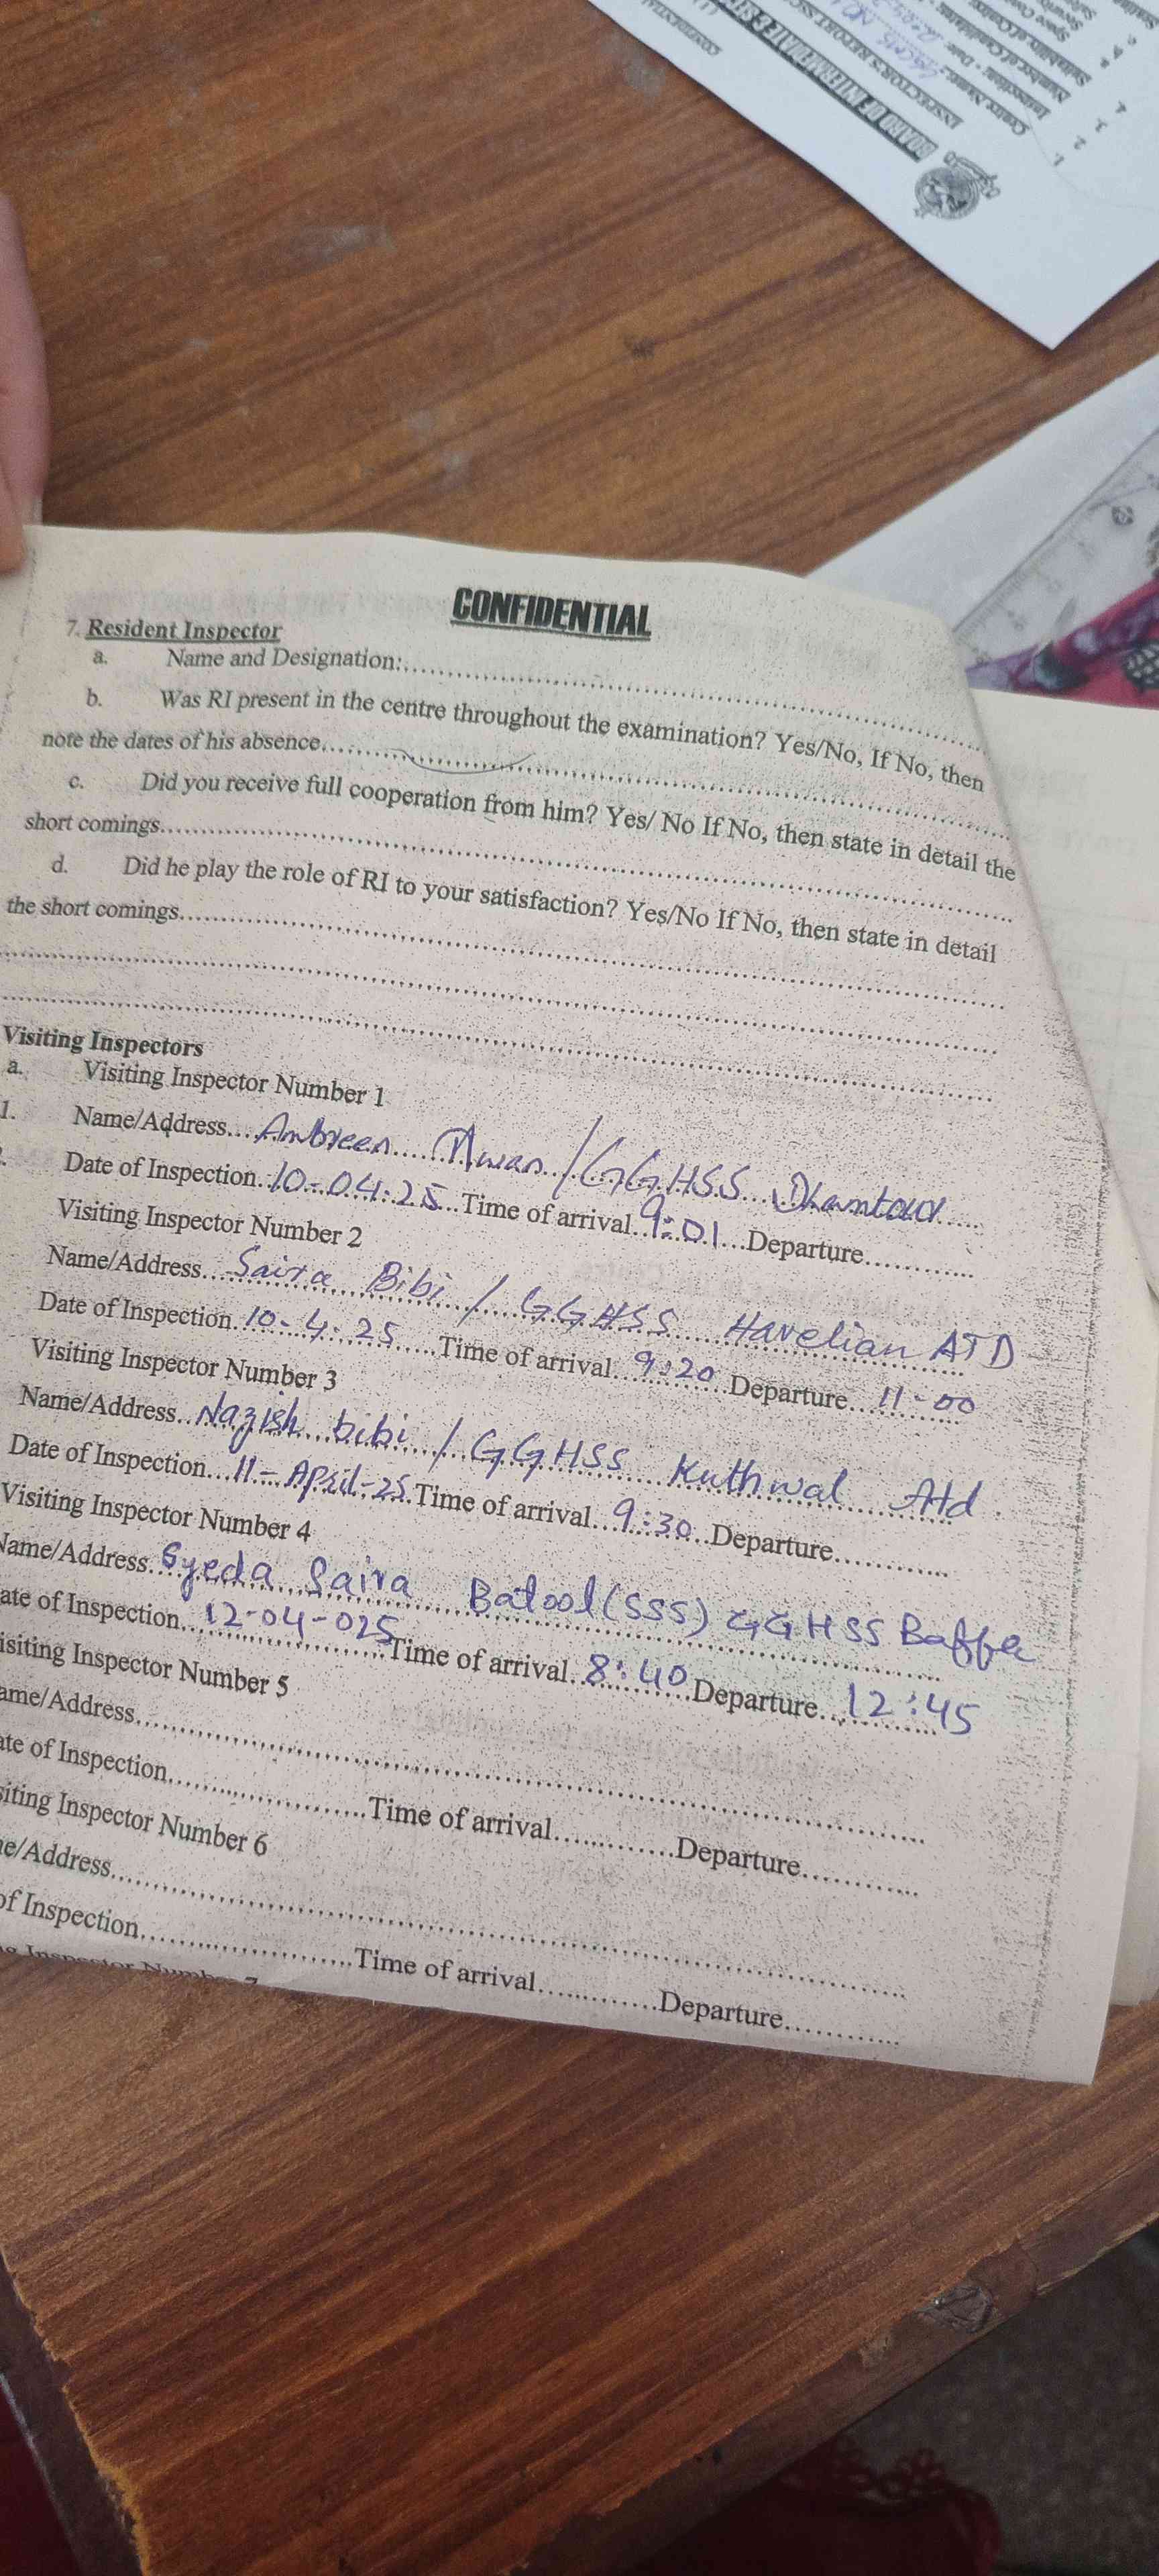 CONFIDENTIAL
7. Resident Inspector
a. Name and Designation:
b. Was RI present in the centre throughout the examination? Yes/No, If No, then
note the dates of his absence
c. Did you receive full cooperation from him? Yes/ No If No, then state in detail the
short comings
d. Did he play the role of RI to your satisfaction? Yes/No If No, then state in detail
the short comings
Visiting Inspectors
a. Visiting Inspector Number 1
1. Name/Address Ambreen Awan / GGHSS Dhamtour
Date of Inspection 10-04-25 Time of arrival 9:01 Departure
Visiting Inspector Number 2
Name/Address Saira Bibi / GGHSS Havelian ATD
Date of Inspection 10-4-25 Time of arrival 9:20 Departure 11-00
Visiting Inspector Number 3
Name/Address Nazish bibi / GGHSS Kuthwal Atd
Date of Inspection 11-April-25 Time of arrival 9:30 Departure
Visiting Inspector Number 4
Name/Address Syeda Saira Batool (SSS) GGHSS Baffa
ate of Inspection 12-04-025 Time of arrival 8:40 Departure 12:45
isiting Inspector Number 5
ame/Address
ate of Inspection Time of arrival Departure
siting Inspector Number 6
e/Address
of Inspection Time of arrival Departure
Inspector Number 7
CONFIDENTIAL
BOARD OF INTERMEDIATE &
INSPECTOR'S REPORT
1. Centre Name:
2. Inspection: Date:
3. Number of Candidates
4. Suitability of Centre